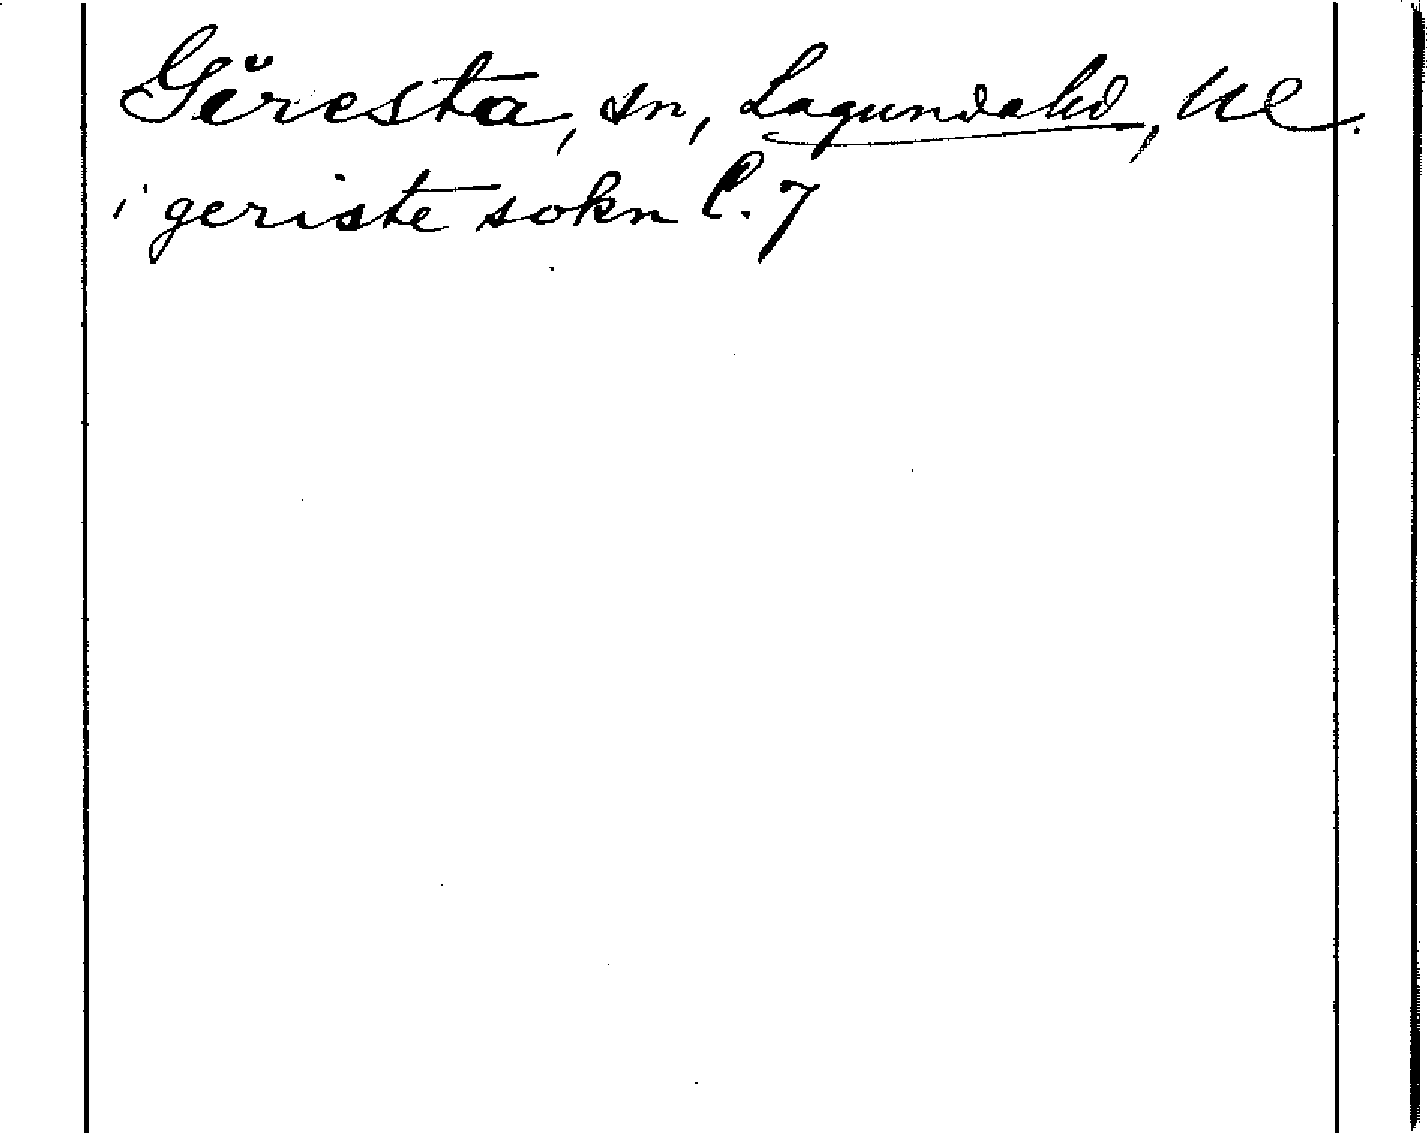 Gäresta, sn, Lagunda hd, Ul.
i geriste sokn C. 7